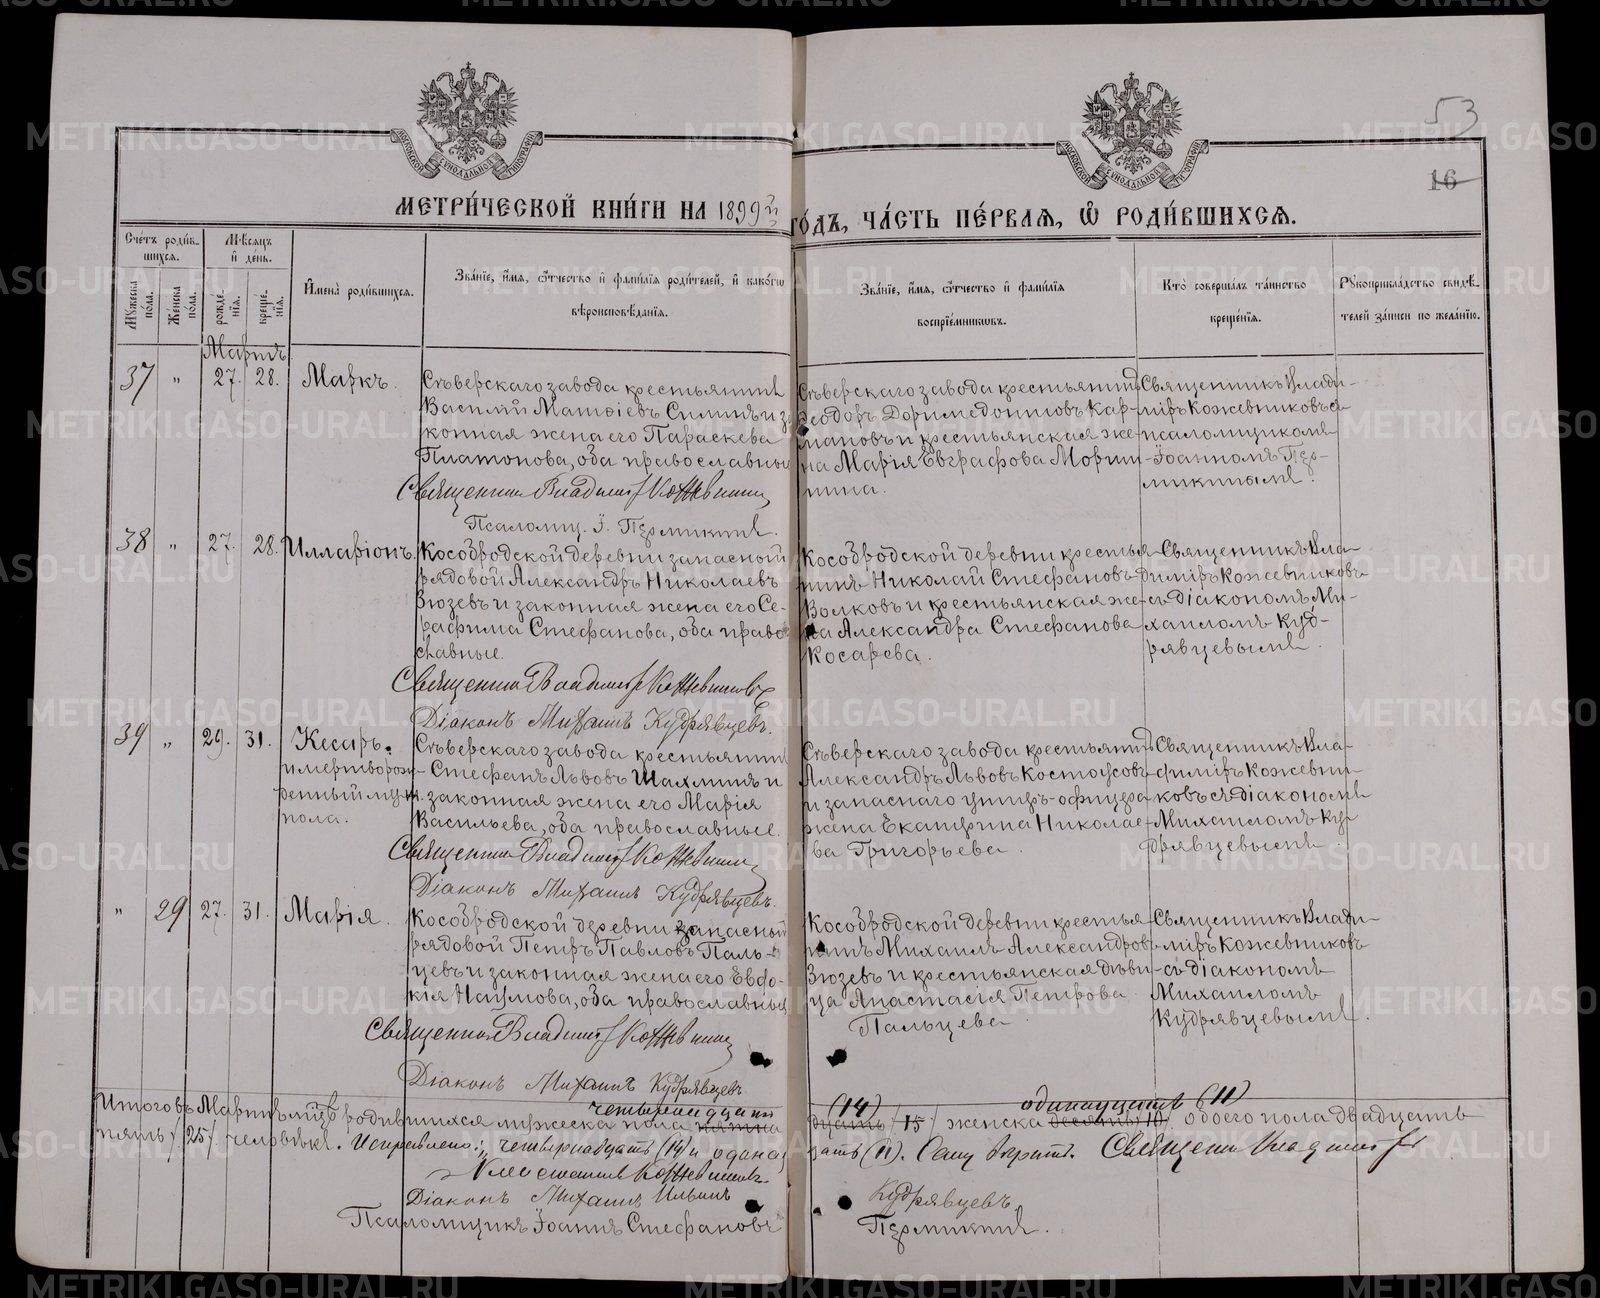 53
16
МЕТРИ́ЧЕСКОЙ КНИ́ГИ НА 1899й
ГО́ДЪ, ЧА́СТЬ ПЕ́РВАЯ, Ѽ РОДИ́ВШИХСЯ.
Сче́тъ роди́в-
шихся.
Мꙋ́жеска по́ла.
Же́нска по́ла.
Мѣ́сяцъ
и҆ де́нь.
рожде́-
нїя.
креще́-
нїя.
И҆мена̀ роди́вшихся.
Зва́нїе, и҆́мя, ѻ҆́тчество и҆ фами́лїя роди́телей, и҆ како́гѡ
вѣроисповѣ́данїя.
Зва́нїе, и҆́мя, ѻ҆́тчество и҆ фами́лїя
воспрїе́мникѡвъ.
Кто̀ соверша́лъ та́инство
креще́нїя.
Рꙋкоприкла́дство свидѣ́-
телей за́писи по жела́нїю.
Мартъ
37 " 27. 28. Маркъ.
Сѣверскаго завода крестьянинъ
Василій Матѳіевъ Силинъ и за
конная жена его Параскева
Платонова, оба православные
Священникъ Владиміръ Кожевниковъ
Псаломщ. І. Пермикинъ.
Сѣверскаго завода крестьянинъ
Ѳеодоръ Доримедонтовъ Кар-
мановъ и крестьянская же-
на Марія Евграфова Морни
нина.
Священникъ Влади-
міръ Кожевниковъ съ
псаломщикомъ
Іоанномъ Пер-
микинымъ.
38 " 27. 28. Илларіонъ.
Кособродской деревни запасный
рядовой Александръ Николаевъ
Зюзевъ и законная жена его Се-
рафима Стефанова, оба право-
славные.
Священникъ Владиміръ Кожевниковъ
Діаконъ Михаилъ Кудрявцевъ.
Кособродской деревни крестья-
нинъ Николай Стефановъ
Волковъ и крестьянская же-
на Александра Стефанова
Косарева.
Священникъ Вла-
диміръ Кожевниковъ
съ діакономъ Ми-
хаиломъ Куд-
рявцевымъ.
39 " 29. 31. Кесарь.
и мертворож-
денный муж.
пола.
Сѣверскаго завода крестьянинъ
Стефанъ Львовъ Шахминъ и
законная жена его Марія
Васильева, оба православные.
Священникъ Владиміръ Кожевниковъ
Діаконъ Михаилъ Кудрявцевъ.
Сѣверскаго завода крестьянинъ
Александръ Львовъ Костоусовъ
и запаснаго унтеръ-офицера
жена Екатерина Николае-
ва Григорьева.
Священникъ Вла-
диміръ Кожевни-
ковъ съ діакономъ
Михаиломъ Ку-
дрявцевымъ.
" 29 27. 31. Марія.
Кособродской деревни запасный
рядовой Петръ Павловъ Паль-
цевъ и законная жена его Евдо-
кія Наумова, оба православные
Священникъ Владиміръ Кожевниковъ
Діаконъ Михаилъ Кудрявцевъ
Кособродской деревни крестья-
нинъ Михаилъ Александровъ
Зюзевъ и крестьянская дѣви-
ца Анастасія Петрова
Пальцева.
Священникъ Влади-
міръ Кожевниковъ
съ діакономъ
Михаиломъ
Кудрявцевымъ.
четырнадцать (14) одинадцать (11)
Итого въ Мартѣ мцѣ родившихся мужеска пола пятна дцать /15/ женска десять /10/, обоего пола двадцать
пять /25/ человѣкъ. Исправлено: четырнадцать (14) и одинад цать (11).
Священникъ Владиміръ
Кожевниковъ
Діаконъ Михаилъ Ильинъ Кудрявцевъ
Псаломщикъ Іоаннъ Стефановъ Пермикинъ.
METRIKI.GASO-URAL.RU